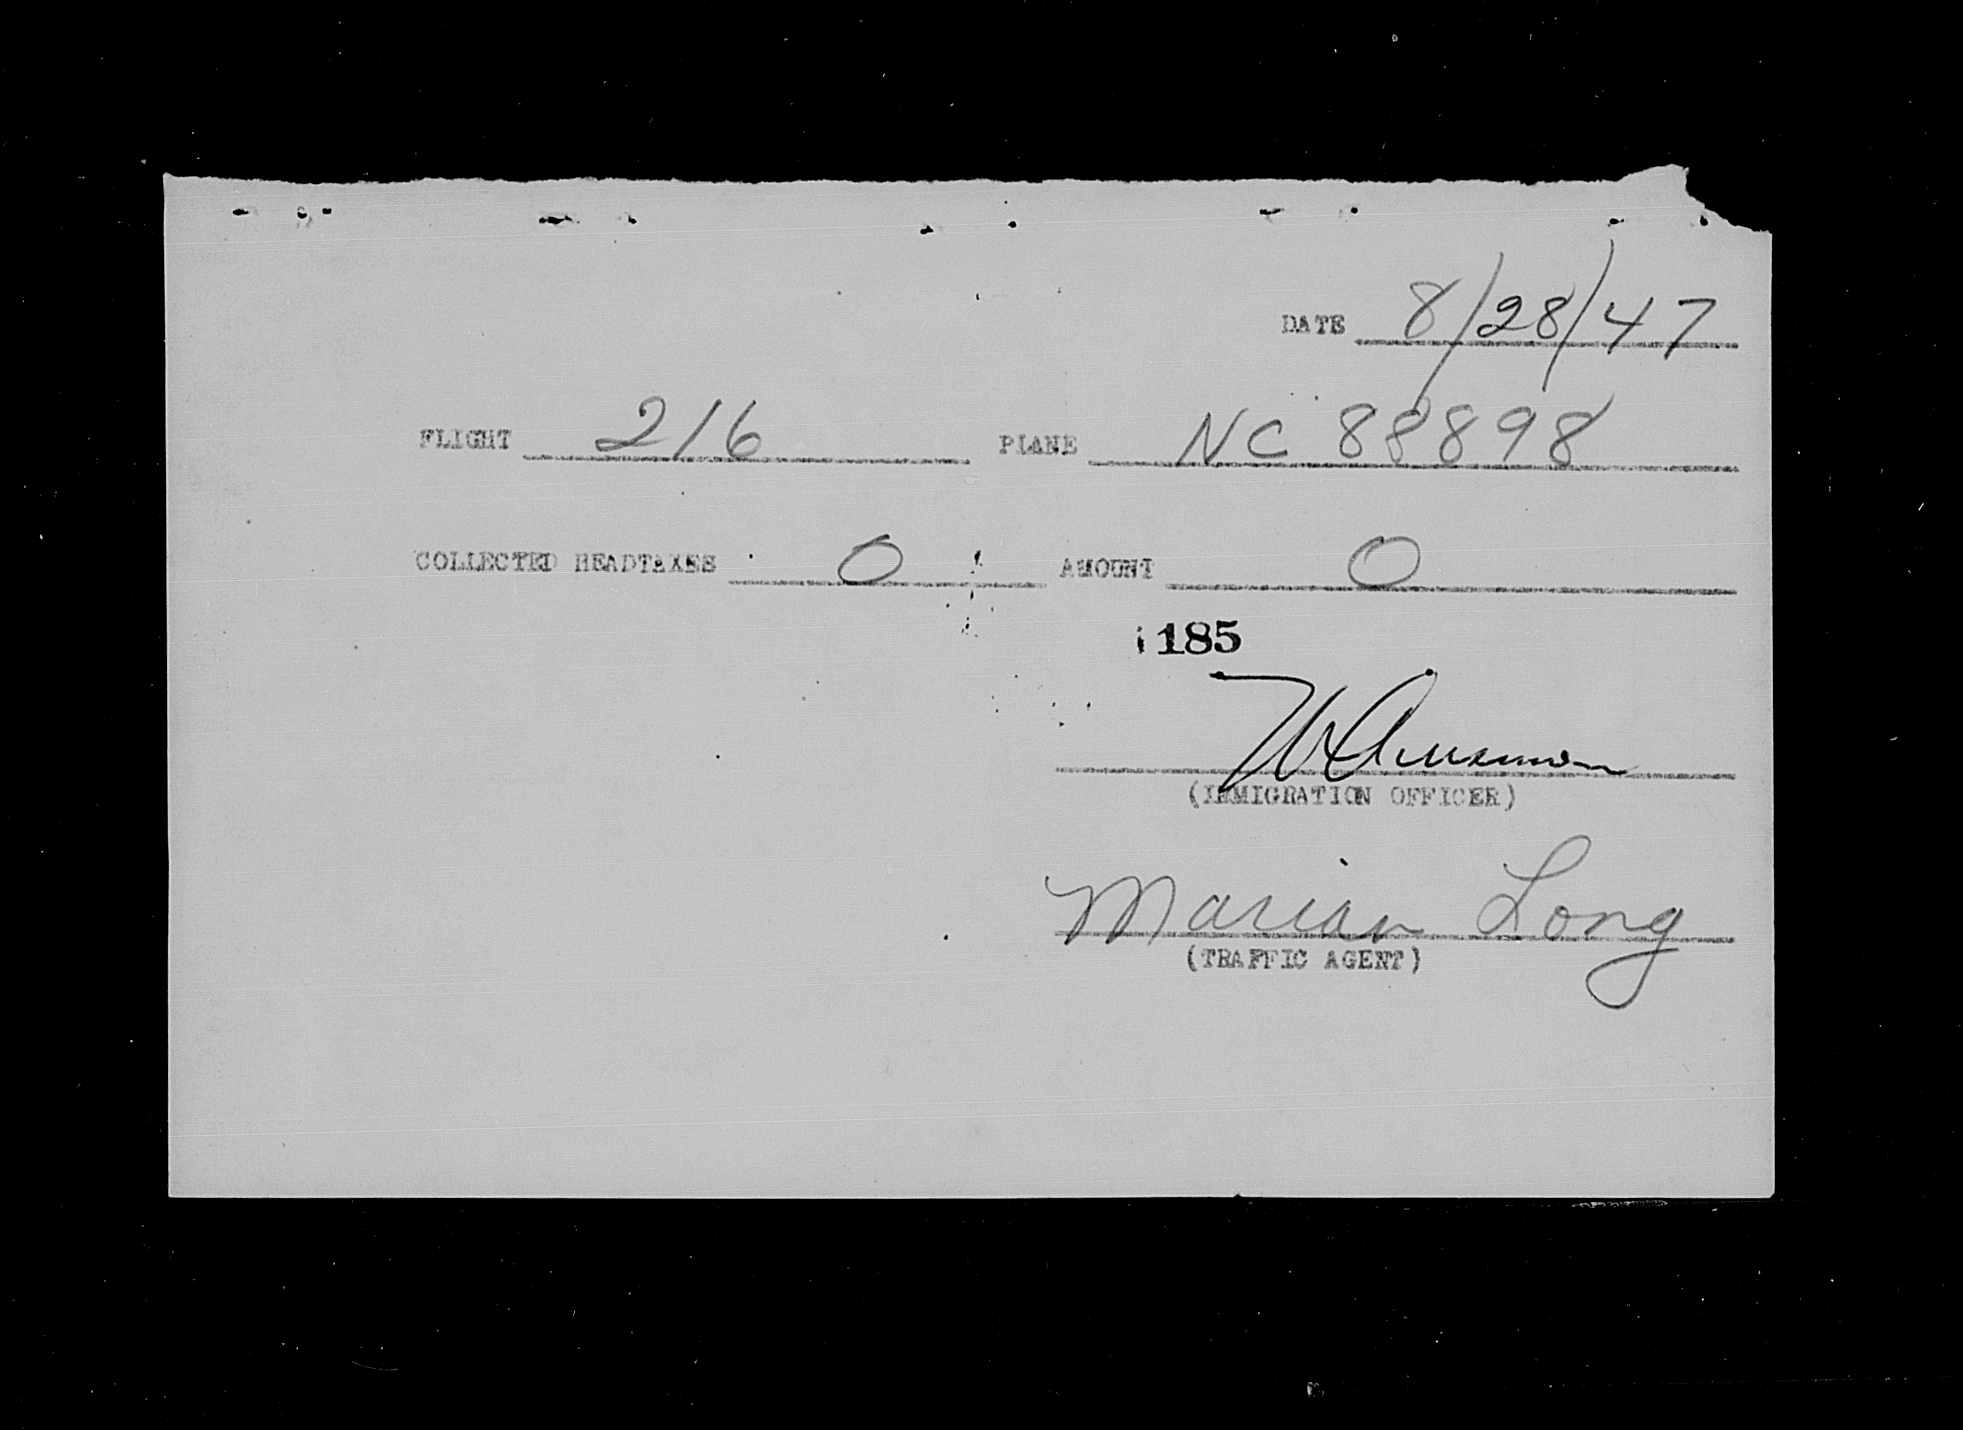 DATE 8/28/47
FLIGHT 216 PLANE NC 88898
COLLECTED HEADTAXES 0 AMOUNT 0
185
(IMMIGRATION OFFICER)
Marian Long
(TRAFFIC AGENT)